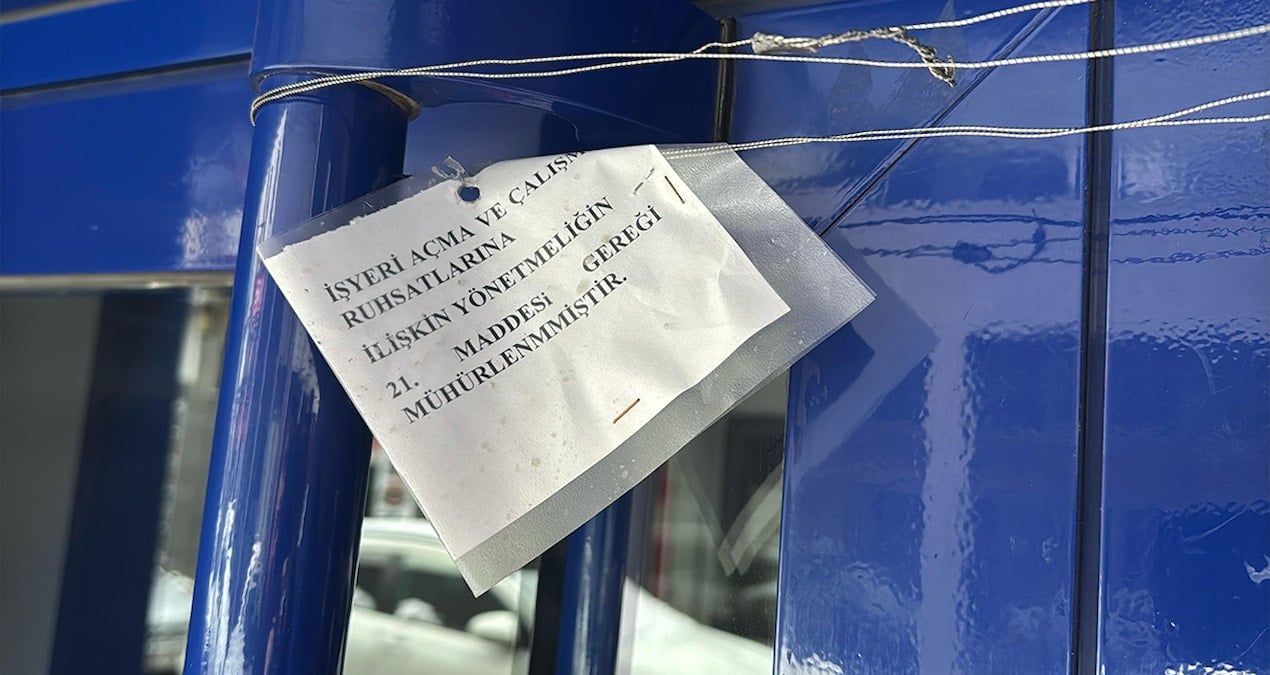 İŞYERİ AÇMA VE ÇALIŞM
RUHSATLARINA
İLİŞKİN YÖNETMELİĞİN
21. MADDESİ GEREĞİ
MÜHÜRLENMMİŞTİR.